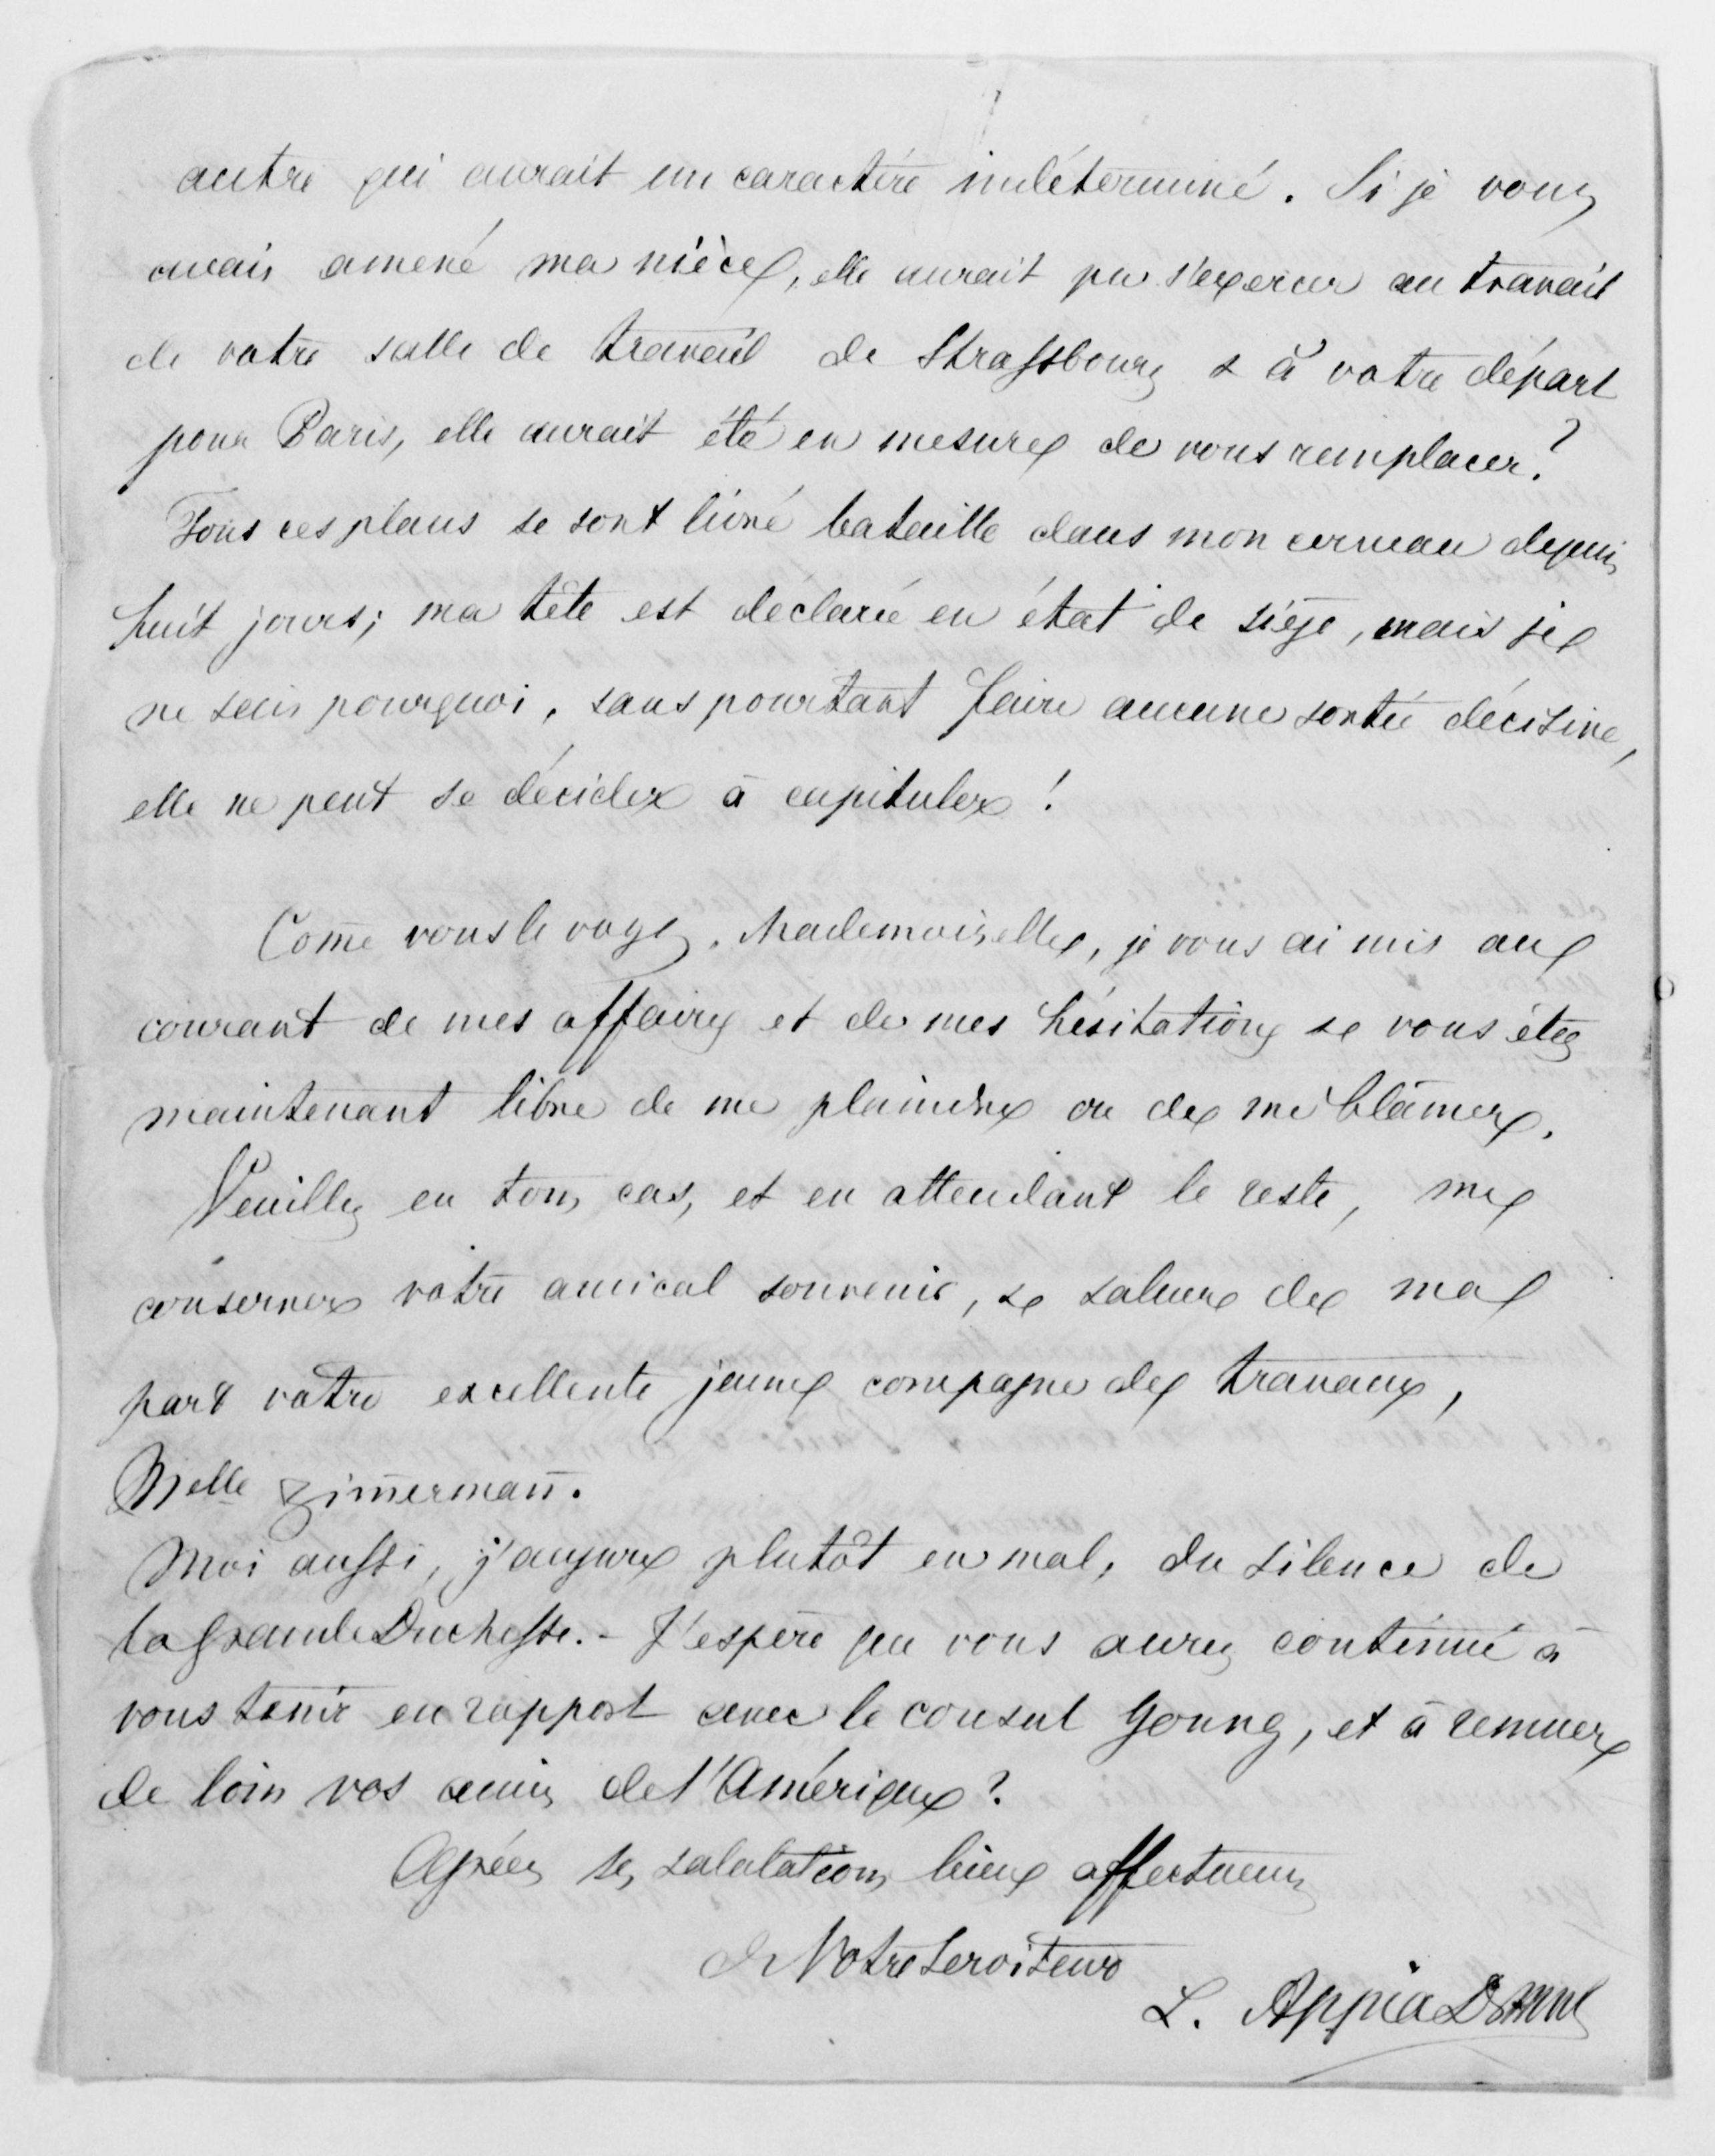 autre qui aurait un caractère indéterminé. Si je vous
avais amené ma nièce, elle aurait pu s'exercer au travail
de votre salle de travail de Strassbourg & à votre départ
pour Paris, elle aurait été en mesure de vous remplacer?
Tous ces plans se sont livré bataille dans mon cerveau depuis
huit jours; ma tête est déclarée en état de siège, mais je
ne sais pourquoi, sans pourtant faire aucune sortie décisive,
elle ne peut se décider à capituler!
Com̄e vous le voyez, Mademoiselle, je vous ai mis au
courant de mes affaires et de mes hésitations & vous êtes
maintenant libre de me plaindre ou de me blâmer.
Veuillez en tous cas, et en attendant le reste, me
conserver votre amical souvenir, & saluer de ma
part votre excellente jeune compagne de travaux,
Melle Zim̄erman̄.
Moi aussi, j'augure plutôt en mal, du silence de
la Grande Duchesse. - J'espère que vous aurez continué à
vous tenir en rapport avec le consul Young, et à remuer
de loin vos amis de l'Amérique?
Agréez les salutations bien affectueuses
de Votre serviteur
L. Appia